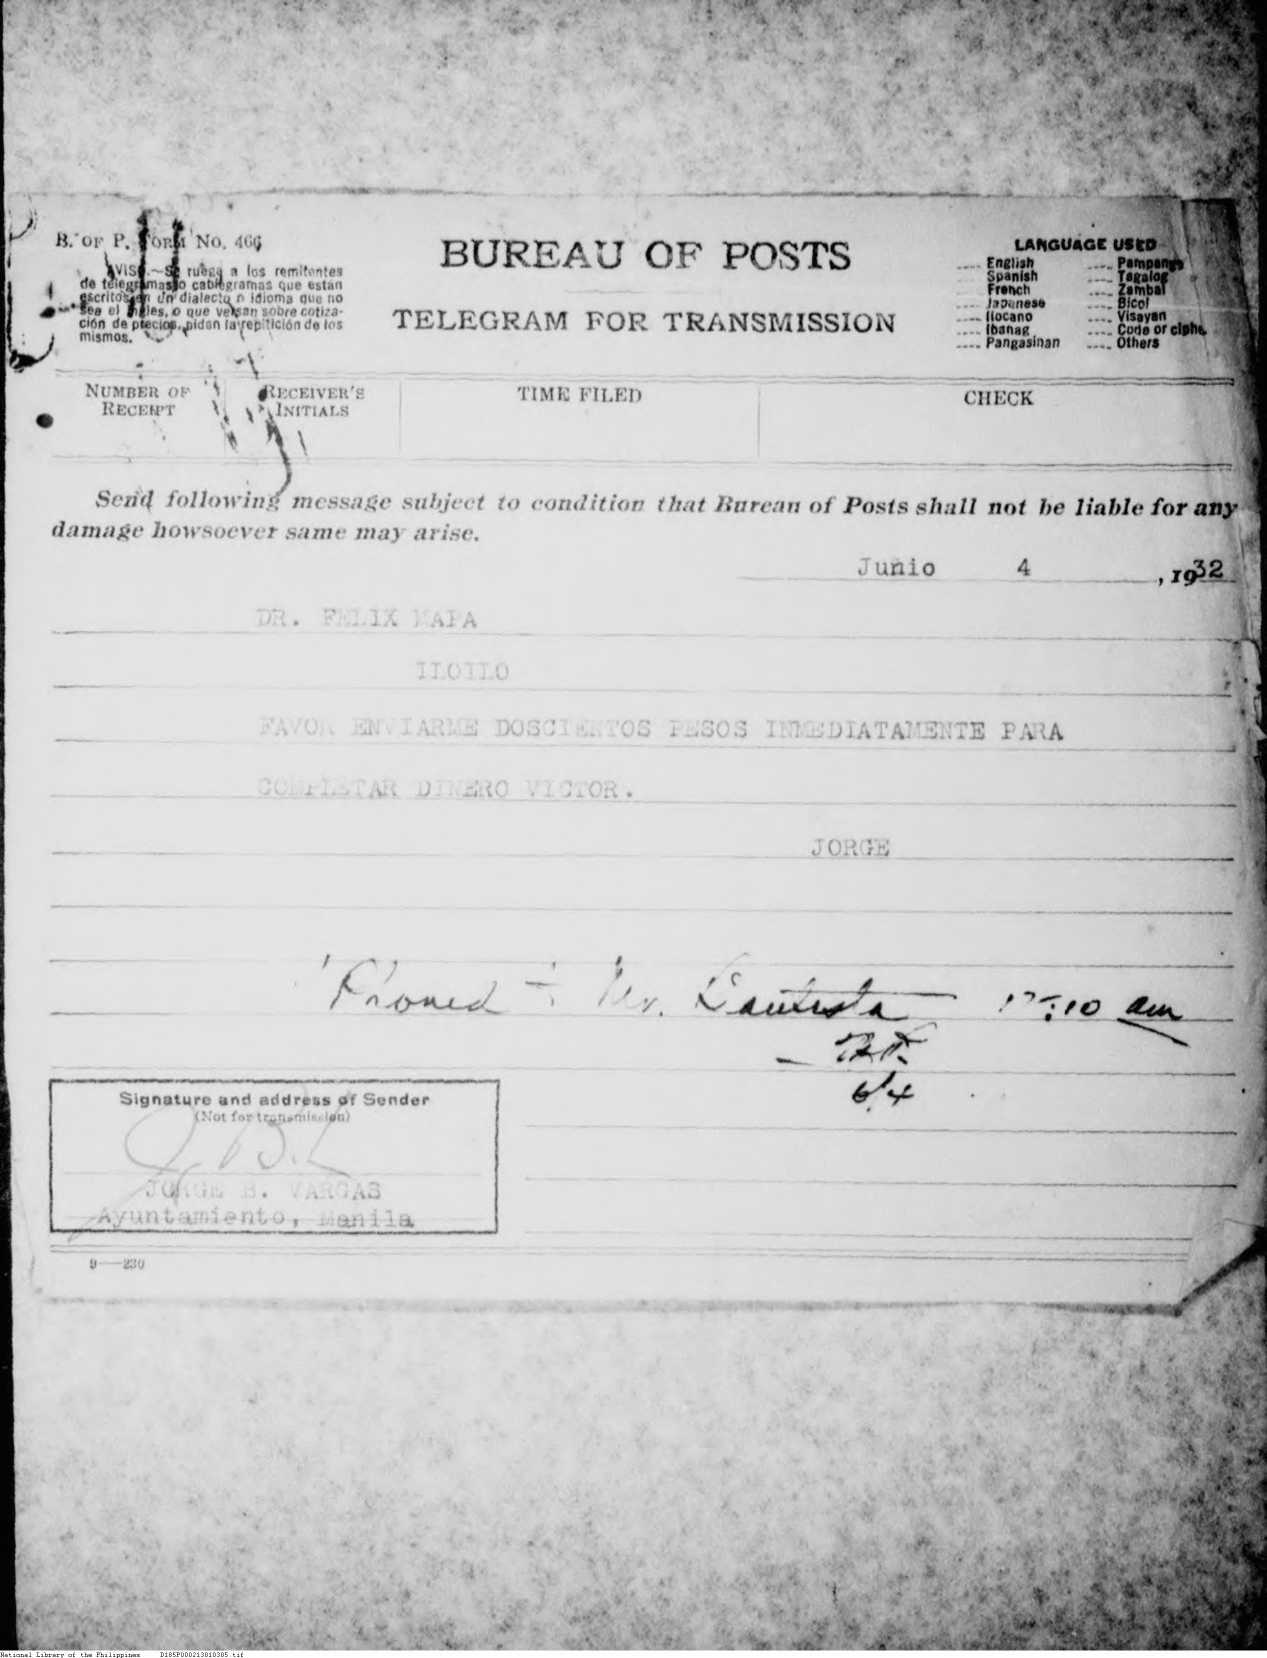 B. OF P. FORM No. 466
AVISO.—Se ruega a los remitentes
de telegramas o cablegramas que están
escritos en un dialecto o idioma que no
sea el inglés, o que versan sobre cotiza-
ción de precios, pidan la repitición de los
mismos.
BUREAU OF POSTS
TELEGRAM FOR TRANSMISSION
LANGUAGE USED
.... English .... Pampango
.... Spanish .... Tagalog
.... French .... Zambal
.... Japanese .... Bicol
.... Ilocano .... Visayan
.... Ibanag .... Code or ciphe
.... Pangasinan .... Others
NUMBER OF RECEIPT
RECEIVER'S INITIALS
TIME FILED
CHECK
Send following message subject to condition that Bureau of Posts shall not be liable for any
damage howsoever same may arise.
Junio 4, 1932
DR. FELIX MAPA
ILOILO
FAVOR ENVIARME DOSCIENTOS PESOS INMEDIATAMENTE PARA
COMPLETAR DINERO VICTOR.
JORGE
'Phoned to Mr. Bautista 10 am
6/4
Signature and address of Sender
(Not for transmission)
JORGE B. VARGAS
Ayuntamiento, Manila
9—230
National Library of the Philippines D185P000213810385.tif